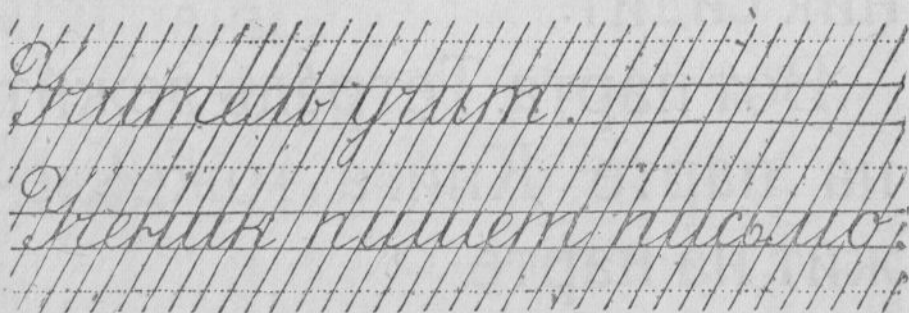 Учитель учит.
Ученик пишет письмо.